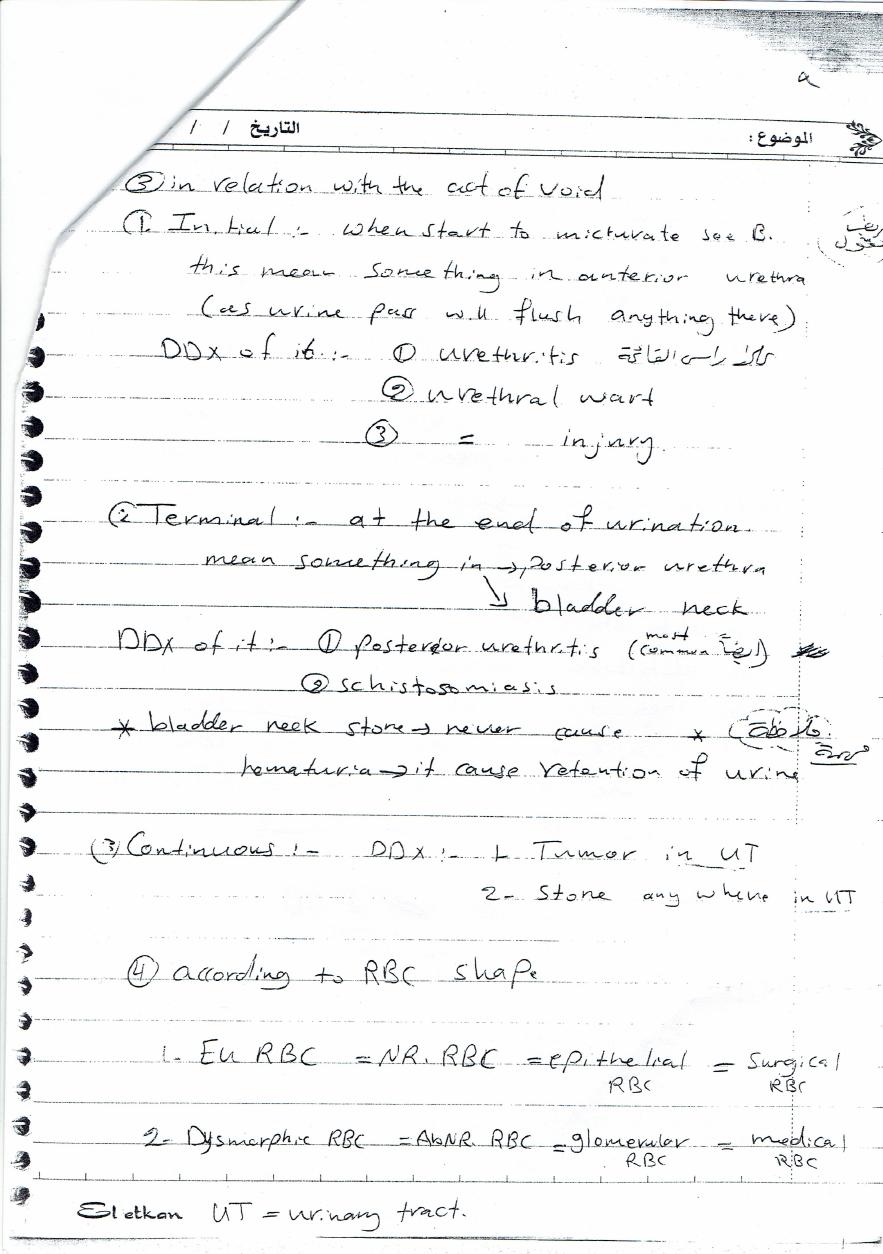 a
التاريخ / /
الموضوع :
③ in relation with the act of void
① Initial :- when start to micturate see B.
this mean something in anterior urethra
(as urine pass will flush anything there)
DDx of it :- ① urethritis
② urethral wart
③ = injury
② Terminal :- at the end of urination.
mean something in → posterior urethra
↘ bladder neck
DDx of it :- ① posterior urethritis (most common)
② schistosomiasis
* bladder neck stone → never cause *
hematuria → it cause retention of urine
(3) Continuous :- DDx :- 1- Tumor in UT
2- Stone any where in UT
④ according to RBC shape
1- Eu RBC = NR. RBC = epithelial RBC = Surgical RBC
2- Dysmorphic RBC = AbNR. RBC = glomerular RBC = medical RBC
Eletkan UT = urinary tract.